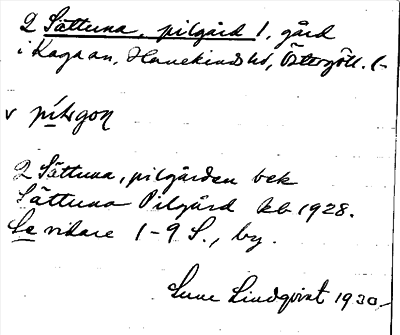 2 Sättuna, pilgård 1, gård
i Kaga sn, Hanekinds hd, Östergötl. l-
v pílsgoɳ
2 Sättuna, pilgården bek
Sättuna Pilgård kb 1928.
Se vidare 1-9 S., by.
Sune Lindqvist 1930